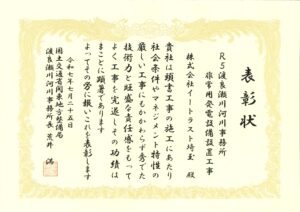 表彰状
R5渡良瀬川河川事務所
非常用発電設備設置工事
株式会社イートラスト埼玉 殿
貴社は頭書工事の施工にあたり
社会条件やマネジメント特性の
厳しい工事にもかかわらず秀でた
技術力と旺盛な責任感をもって
よく工事を完遂しその功績は
まことに顕著であります
よってその労に報いこれを表彰します
令和七年七月二十五日
国土交通省関東地方整備局
渡良瀬川河川事務所長 荒井 満